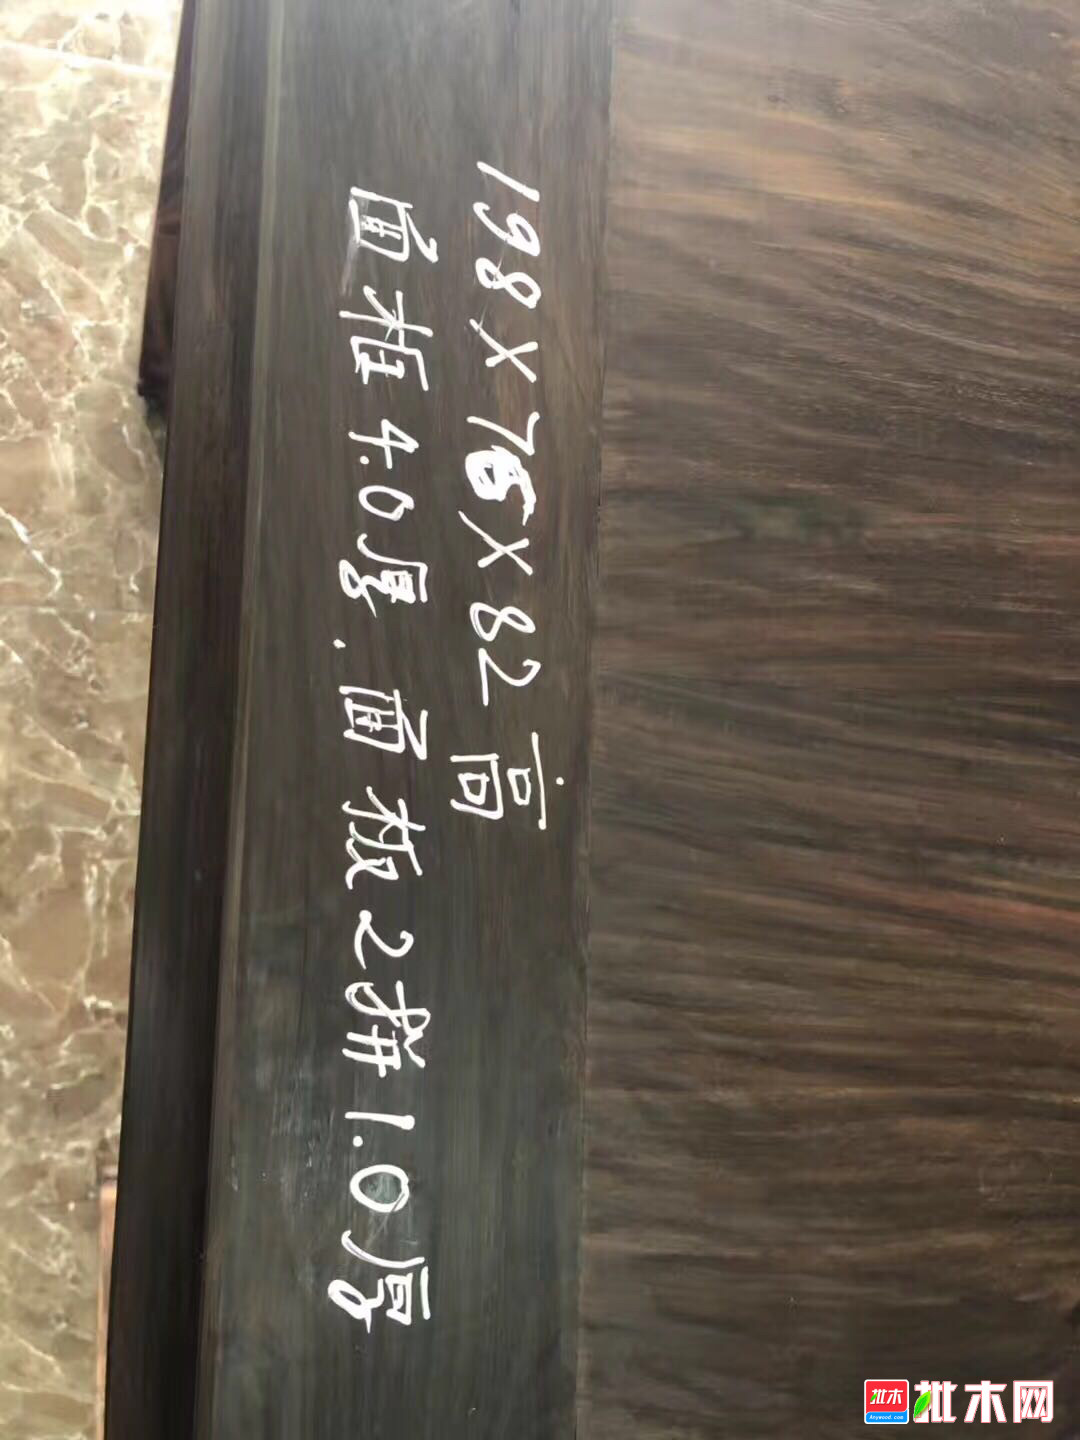 198X76X82高
面框4.0厚.面板2拼1.0厚
批木
Anywood.com
批木网